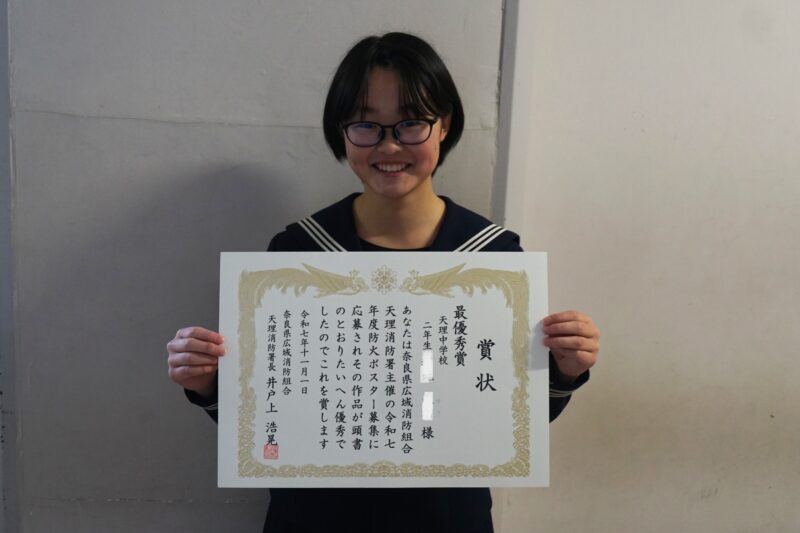 賞状
最優秀賞
天理中学校
二年生 様
あなたは奈良県広域消防組合
天理消防署主催の令和七
年度防火ポスター募集に
応募されその作品が頭書
のとおりたいへん優秀で
したのでこれを賞します
令和七年十一月一日
奈良県広域消防組合
天理消防署長 井戸上 浩晃